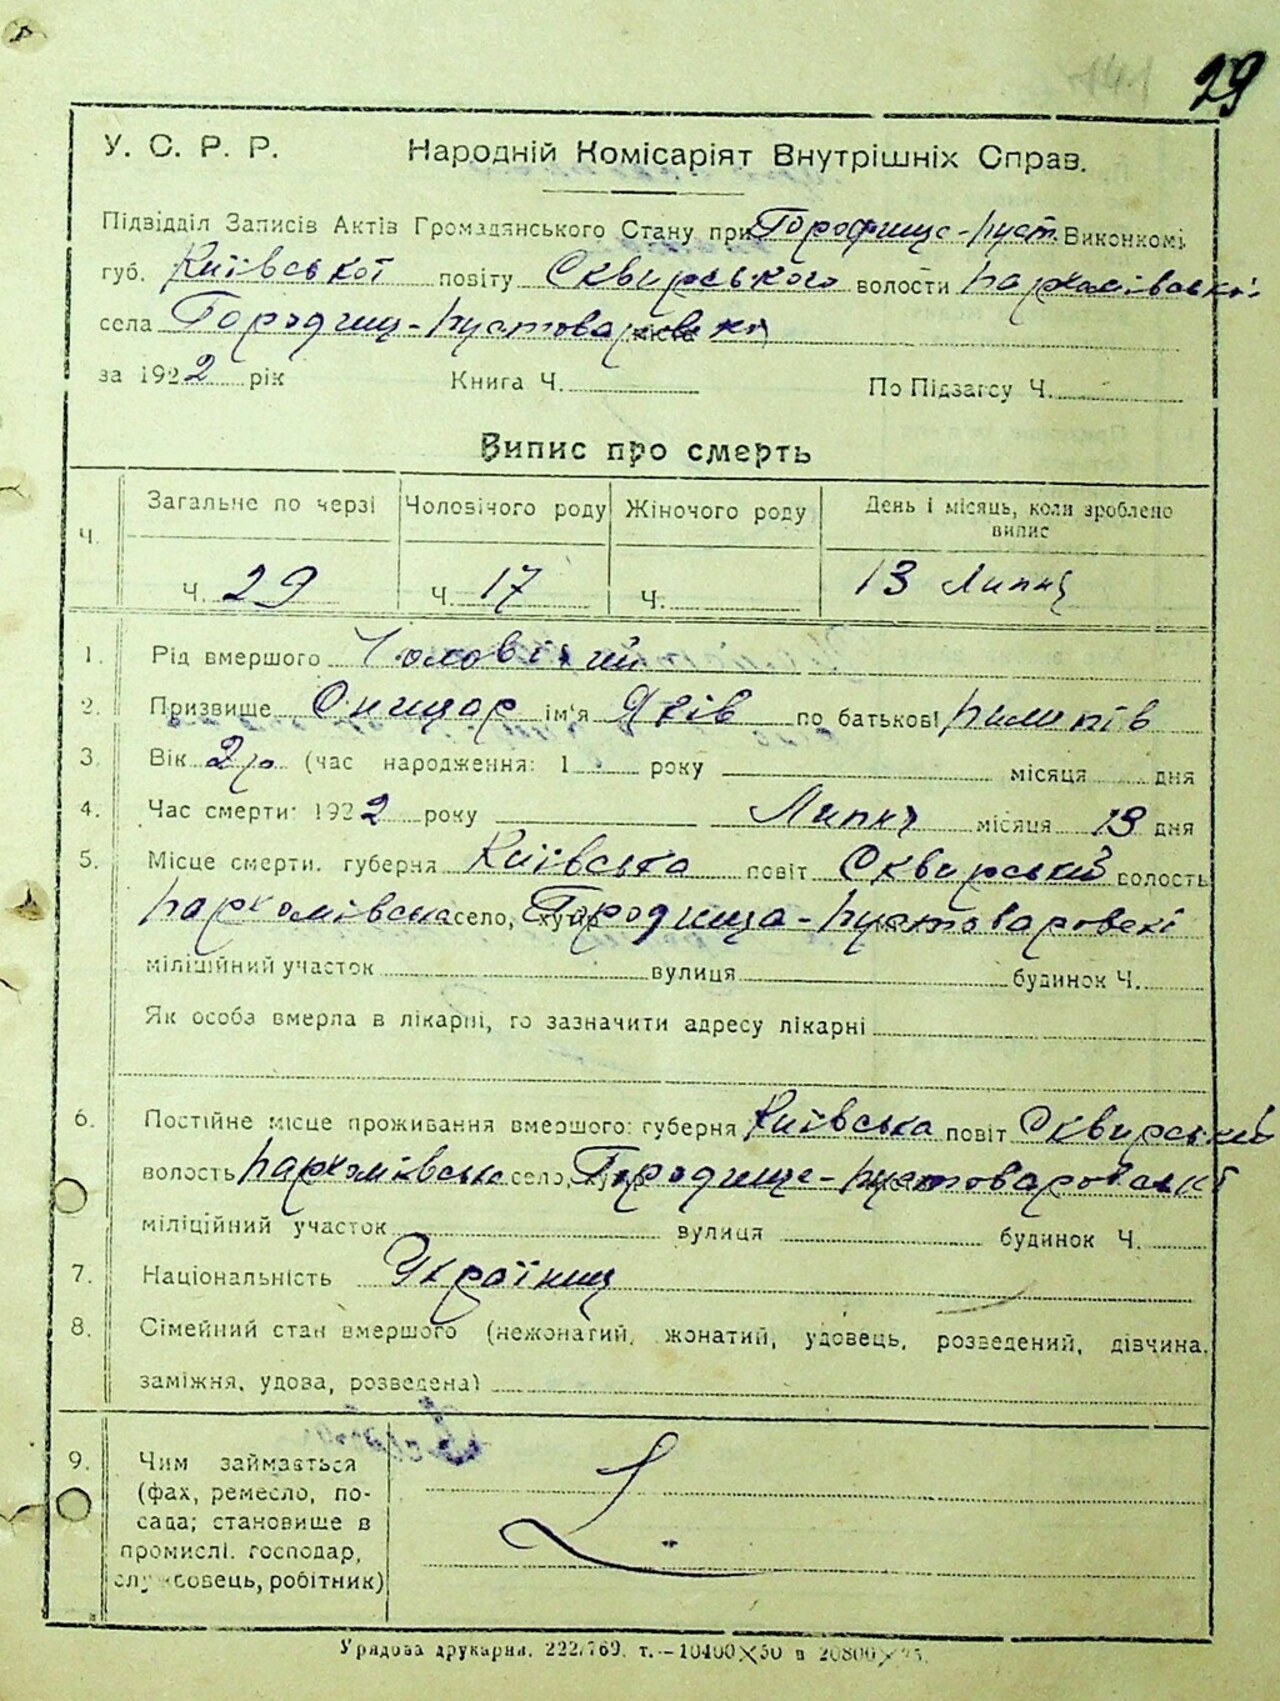 29
У. С. Р. Р. Народній Комісаріят Внутрішніх Справ.
Підвідділ Записів Актів Громадянського Стану при Городище-Пуст. Виконкомі
губ. Київської повіту Сквирського волости Пархомівської
села Городищ-Пустоварівки
за 1922 рік Книга Ч. По Підзагсу Ч.
Випис про смерть
Ч. Загальне по черзі Чоловічого роду Жіночого роду День і місяць, коли зроблено
випис
Ч. 29 Ч. 17 Ч. 13 Липня
1. Рід вмершого Чоловічий
2. Призвище Онищар ім'я Яків по батькові Пилипів
3. Вік 2 р. (час народження: 1 року місяця дня
4. Час смерти: 1922 року Липня місяця 13 дня
5. Місце смерти. губерня Київська повіт Сквирський волость
Пархомівська село, Городища-Пустоваровскі
міліційний участок вулиця будинок Ч.
Як особа вмерла в лікарні, то зазначити адресу лікарні
6. Постійне місце проживання вмершого: губерня Київська повіт Сквирський
волость Пархомівська село, Городище-Пустоваровські
міліційний участок вулиця будинок Ч.
7. Національність Українц
8. Сімейний стан вмершого (нежонатий, жонатий, удовець, розведений, дівчина,
заміжня, удова, розведена)
9. Чим займається
(фах, ремесло, по-
сада; становище в
промислі. господар,
службовець, робітник)
Урядова друкарня. 222/769. т.—10400×50 и 20800×25.